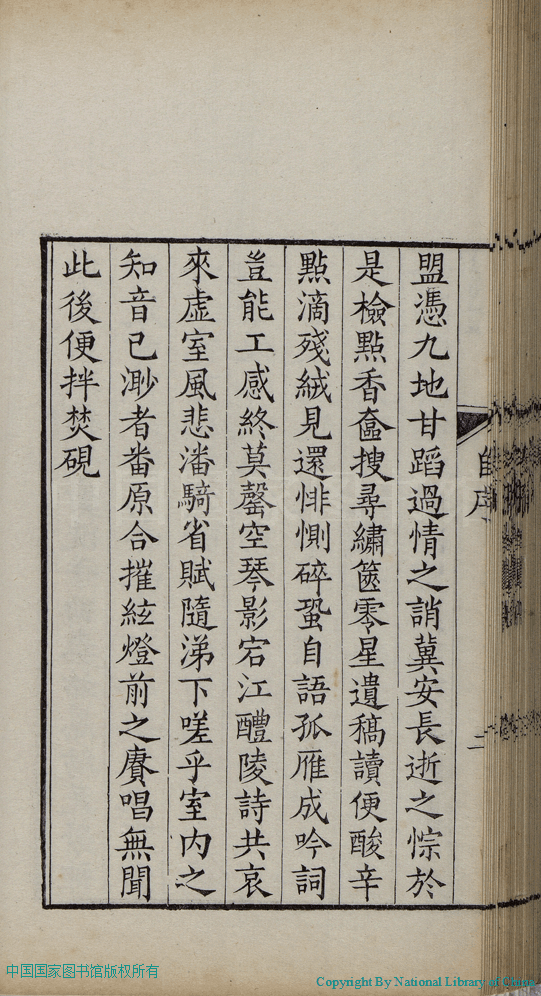 盟憑九地甘蹈過情之誚冀安長逝之悰於
是檢點香奩搜尋繡篋零星遺稿讀便酸辛
點滴殘絨見還悱惻碎蛩自語孤雁成吟詞
豈能工感終莫罄空琴影宕江醴陵詩共哀
來虛室風悲潘騎省賦隨涕下嗟乎室內之
知音已渺者番原合摧絃燈前之賡唱無聞
此後便拌焚硯
中国国家图书馆版权所有
Copyright By National Library of China